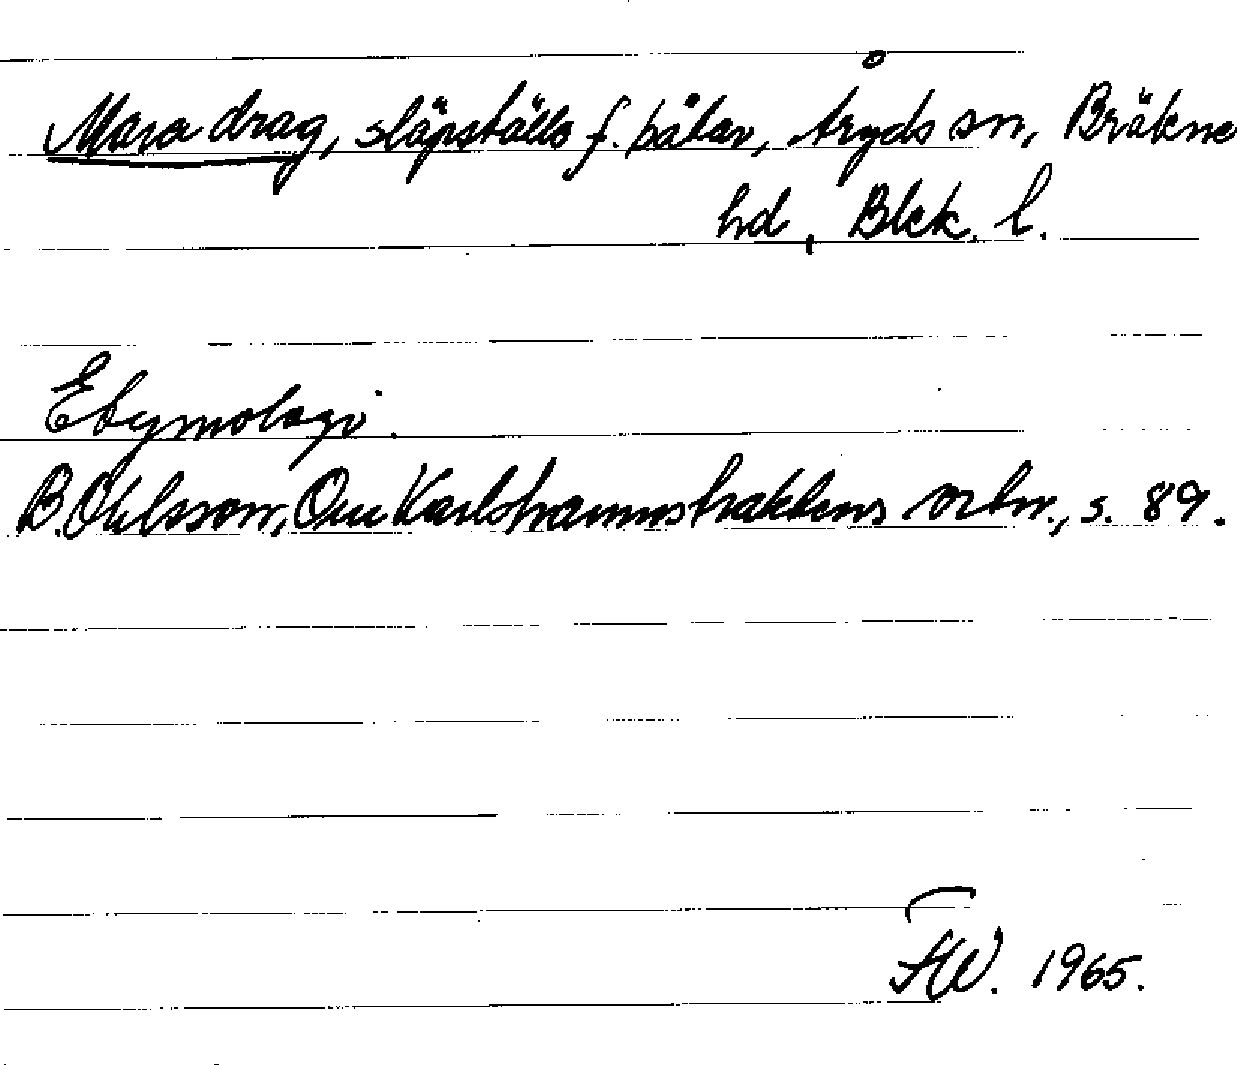 Maradrag, släpställe f. båtar, Åryds sn, Bräkne
hd, Blek. l.
Etymologi.
B. Ohlsson, Om Karlshamnstraktens ortn., s. 89.
FW. 1965.